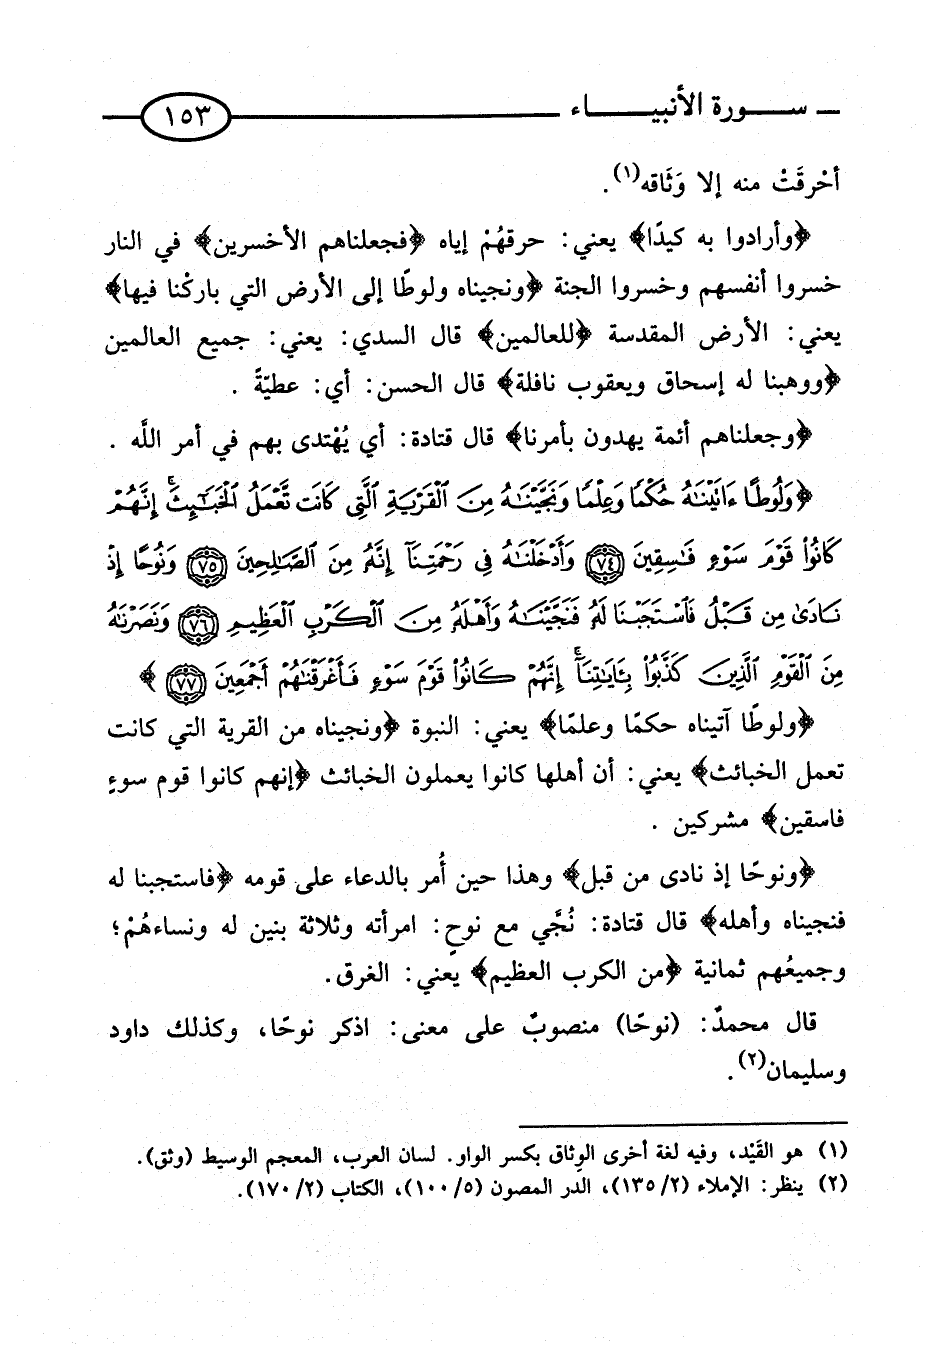 ـ ســـورة الأنبيـــــاء ١٥٣
أحْرقَتْ منه إلا وَثَاقه(١).
﴿وأرادوا به كيدًا﴾ يعني: حرقهُمْ إياه ﴿فجعلناهم الأخسرين﴾ في النار
خسروا أنفسهم وخسروا الجنة ﴿ونجيناه ولوطًا إلى الأرض التي باركْنا فيها﴾
يعني: الأرض المقدسة ﴿للعالمين﴾ قال السدي: يعني: جميع العالمين
﴿ووهبنا له إسحاق ويعقوب نافلة﴾ قال الحسن: أي: عطيّةً .
﴿وجعلناهم أئمة يهدون بأمرنا﴾ قال قتادة: أي يُهْتدى بهم في أمر اللَّه .
﴿وَلُوطًا ءَاتَيْنَٰهُ حُكْمًا وَعِلْمًا وَنَجَّيْنَٰهُ مِنَ ٱلْقَرْيَةِ ٱلَّتِى كَانَت تَّعْمَلُ ٱلْخَبَٰٓئِثَۗ إِنَّهُمْ
كَانُوا۟ قَوْمَ سَوْءٍ فَٰسِقِينَ ﴿٧٤﴾ وَأَدْخَلْنَٰهُ فِى رَحْمَتِنَآ إِنَّهُۥ مِنَ ٱلصَّٰلِحِينَ ﴿٧٥﴾ وَنُوحًا إِذْ
نَادَىٰ مِن قَبْلُ فَٱسْتَجَبْنَا لَهُۥ فَنَجَّيْنَٰهُ وَأَهْلَهُۥ مِنَ ٱلْكَرْبِ ٱلْعَظِيمِ ﴿٧٦﴾ وَنَصَرْنَٰهُ
مِنَ ٱلْقَوْمِ ٱلَّذِينَ كَذَّبُوا۟ بِـَٔايَٰتِنَآۚ إِنَّهُمْ كَانُوا۟ قَوْمَ سَوْءٍ فَأَغْرَقْنَٰهُمْ أَجْمَعِينَ ﴿٧٧﴾ ﴾
﴿ولوطًا آتيناه حكمًا وعلمًا﴾ يعني: النبوة ﴿ونجيناه من القرية التي كانت
تعمل الخبائث﴾ يعني: أن أهلها كانوا يعملون الخبائث ﴿إنهم كانوا قوم سوءٍ
فاسقين﴾ مشركين .
﴿ونوحًا إذ نادى من قبل﴾ وهذا حين أُمر بالدعاء على قومه ﴿فاستجبنا له
فنجيناه وأهله﴾ قال قتادة: نُجَّي مع نوحٍ: امرأته وثلاثة بنين له ونساءهُمْ؛
وجميعُهم ثمانية ﴿من الكرب العظيم﴾ يعني: الغرق.
قال محمدٌ: (نوحًا) منصوبٌ على معنى: اذكر نوحًا، وكذلك داود
وسليمان(٢).
(١) هو القَيْد، وفيه لغة أخرى الوِثاق بكسر الواو. لسان العرب، المعجم الوسيط (وثق).
(٢) ينظر: الإملاء (٢/ ١٣٥)، الدر المصون (٥/ ١٠٠)، الكتاب (٢/ ١٧٠).